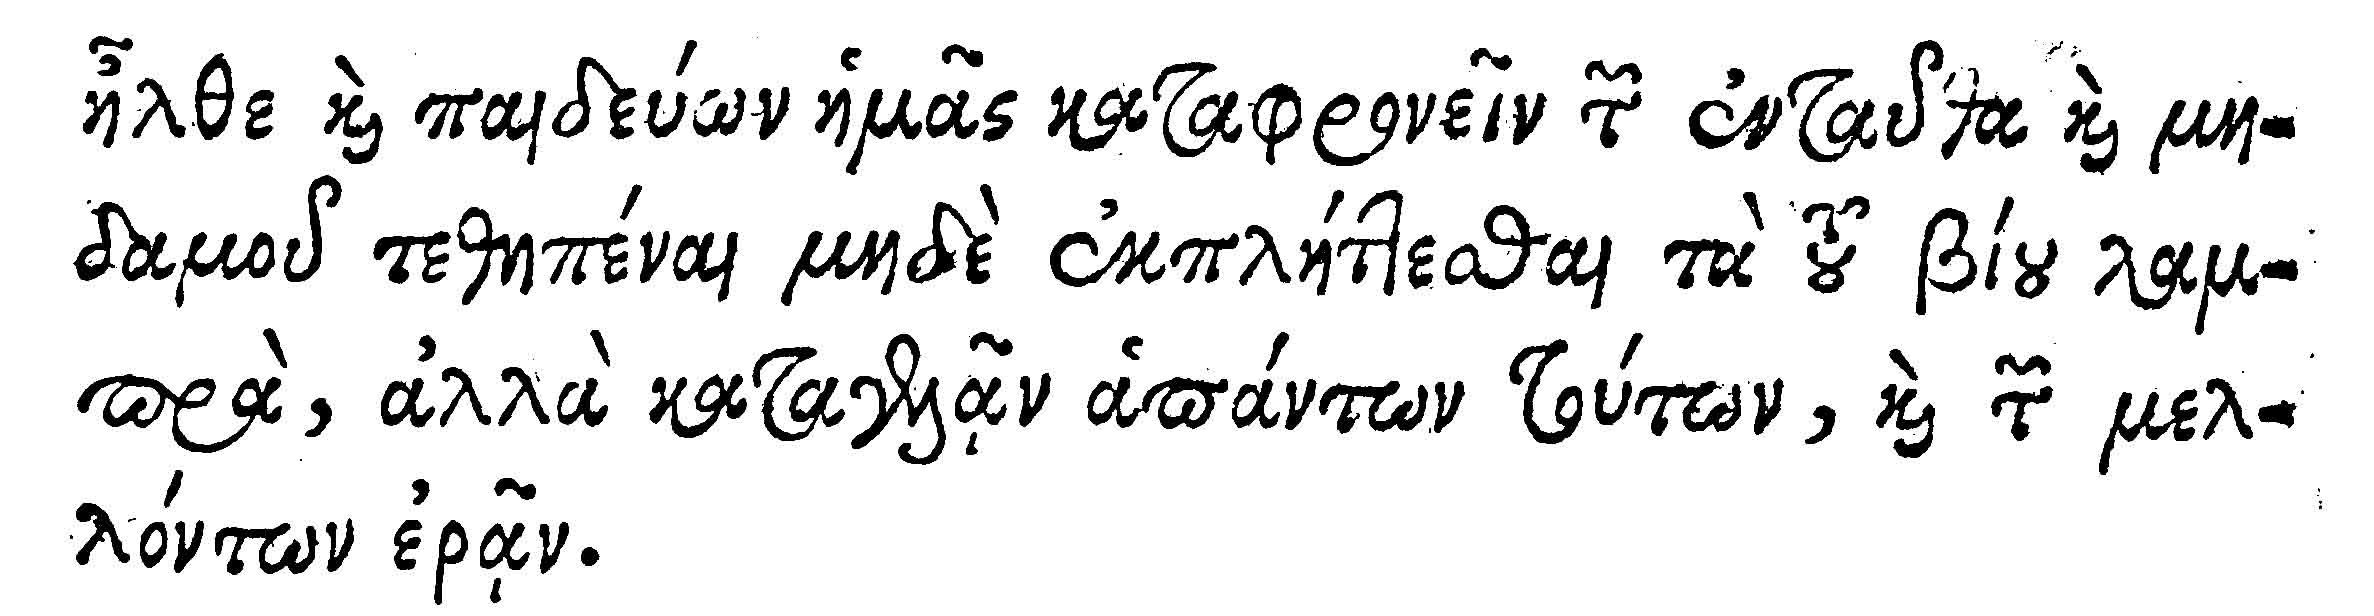 ἦλθε καὶ παιδεύων ἡμᾶς καταφρονεῖν τῶν ἐνταῦθα καὶ μη-
δαμοῦ τεθηπέναι μηδὲ ἐκπλήττεσθαι τὰ τοῦ βίου λαμ-
πρὰ, ἀλλὰ καταγελᾷν ἁπάντων τούτων, καὶ τῶν μελ-
λόντων ἐρᾷν.